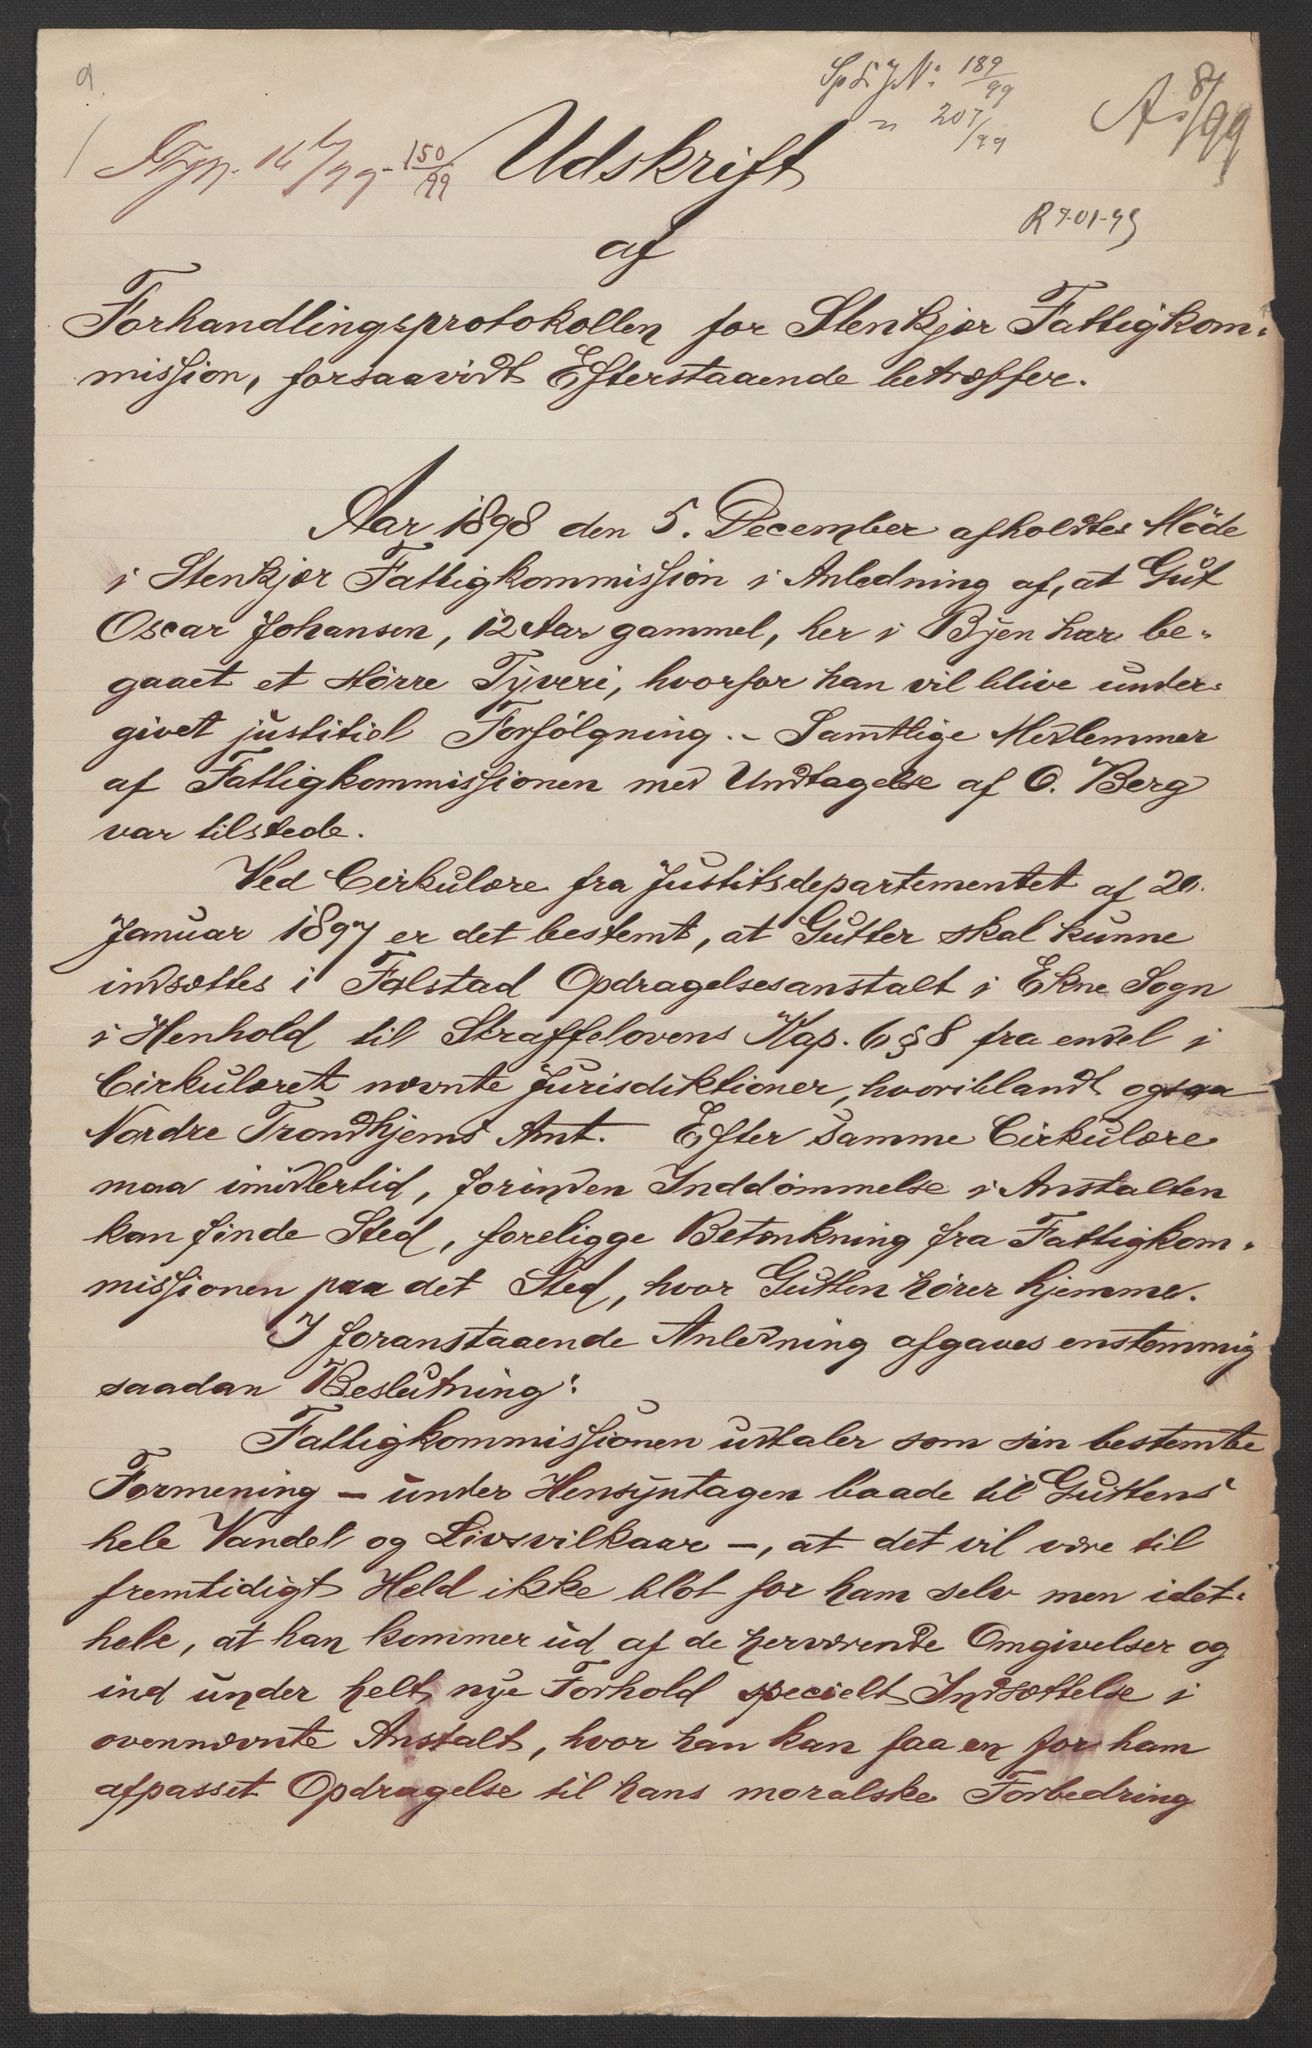 Sp. L. J. No: 189/99
" 207/99
150/99
R 7-01-99
Udskrift
af
Forhandlingsprotokollen for Stenkjær Fattigkom-
mission, forsaavidt Efterstaaende betræffer.
Aar 1898 den 5. December afholdtes Möde
i Stenkjær Fattigkommission i Anledning af, at Gut
Oscar Johansen, 12 Aar gammel, her i Byen har be-
gaaet et större Tyveri, hvorfor han vil blive under-
givet justitiel Forfölgning. - Samtlige Medlemmer
af Fattigkommissionen med Undtagelse af O. Berg
var tilstede.
Ved Cirkulære fra Justitsdepartementet af 20.
Januar 1897 er det bestemt, at Gutter skal kunne
indsættes i Falstad Opdragelsesanstalt i Ekne Sogn
i Henhold til Straffelovens Kap. 6 § 8 fra endel i
Cirkulæret nævnte Jurisdiktioner, hvoriblandt ogsaa
Nordre Trondhjems Amt. Efter samme Cirkulære
maa imidlertid, forinden Inddömmelse i Anstalten
kan finde Sted, foreligge Betænkning fra Fattigkom-
missionen paa det Sted, hvor Gutten hörer hjemme.
I foranstaaende Anledning afgaves enstemmig
saadan Beslutning:
Fattigkommissionen udtaler som sin bestemte
Formening - under Hensyntagen baade til Guttens
hele Vandel og Livsvilkaar -, at det vil være til
fremtidigt Held ikke blot for ham selv men idet-
hele, at han kommer ud af de herværende Omgivelser og
ind under helt nye Forhold specielt Indsættelse i
ovennævnte Anstalt, hvor han kan faa en for ham
afpasset Opdragelse til hans moralske Forbedring